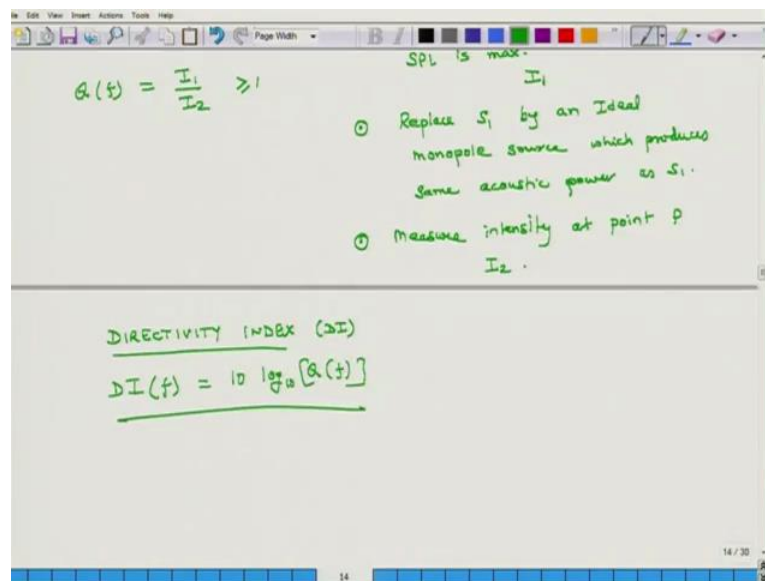 File Edit View Insert Actions Tools Help
Page Width
SPL is max.
I₁
Q(f) = I₁/I₂ ≥1
⊙ Replace S₁ by an Ideal
monopole source which produces
same acoustic power as S₁.
⊙ Measure intensity at point P
I₂.
DIRECTIVITY INDEX (DI)
DI(f) = 10 log₁₀ [Q(f)]
14 / 30
14